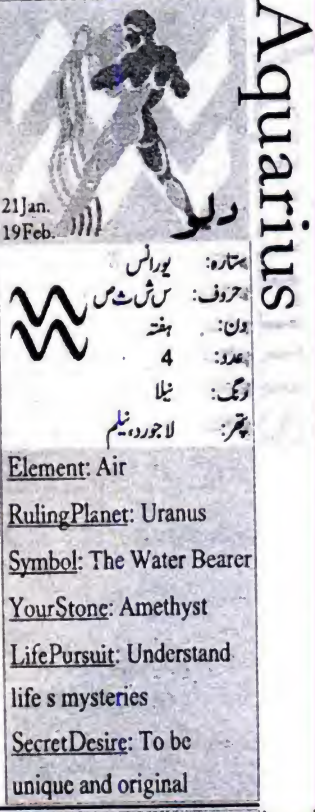 Aquarius
21Jan.
19Feb.
دلو
ستارہ: یورانس
حروف: س ش ث ص
دن: ہفتہ
عدد: 4
رنگ: نیلا
پتھر: لاجورد،نیلم
Element: Air
RulingPlanet: Uranus
Symbol: The Water Bearer
YourStone: Amethyst
LifePursuit: Understand
life s mysteries
SecretDesire: To be
unique and original